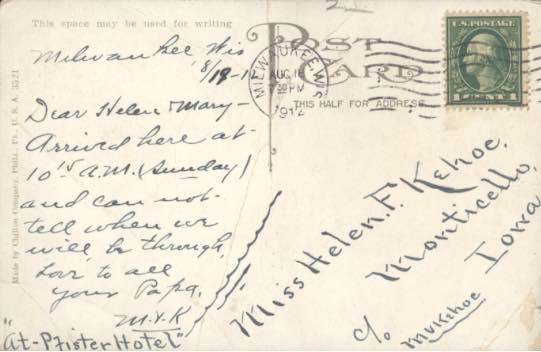 This space may be used for writing
Milwaukee Wis
8/19-1
Dear Helen Mary-
Arrived here at
10 15 A.M. (Sunday)
and can not
tell when we
will be through,
Love to all
your Papa.
M.V.K
"At-Pfister Hotel"
Made by Chilton Company, Phila. Pa. U.S.A. 3521
POST CARD
THIS HALF FOR ADDRESS
MILWAUKEE, WIS.
AUG 19
PM
1912
U.S. POSTAGE
1 CENT 1
Miss Helen. F. Kehoe.
Monticello.
Iowa
c/o MVKehoe